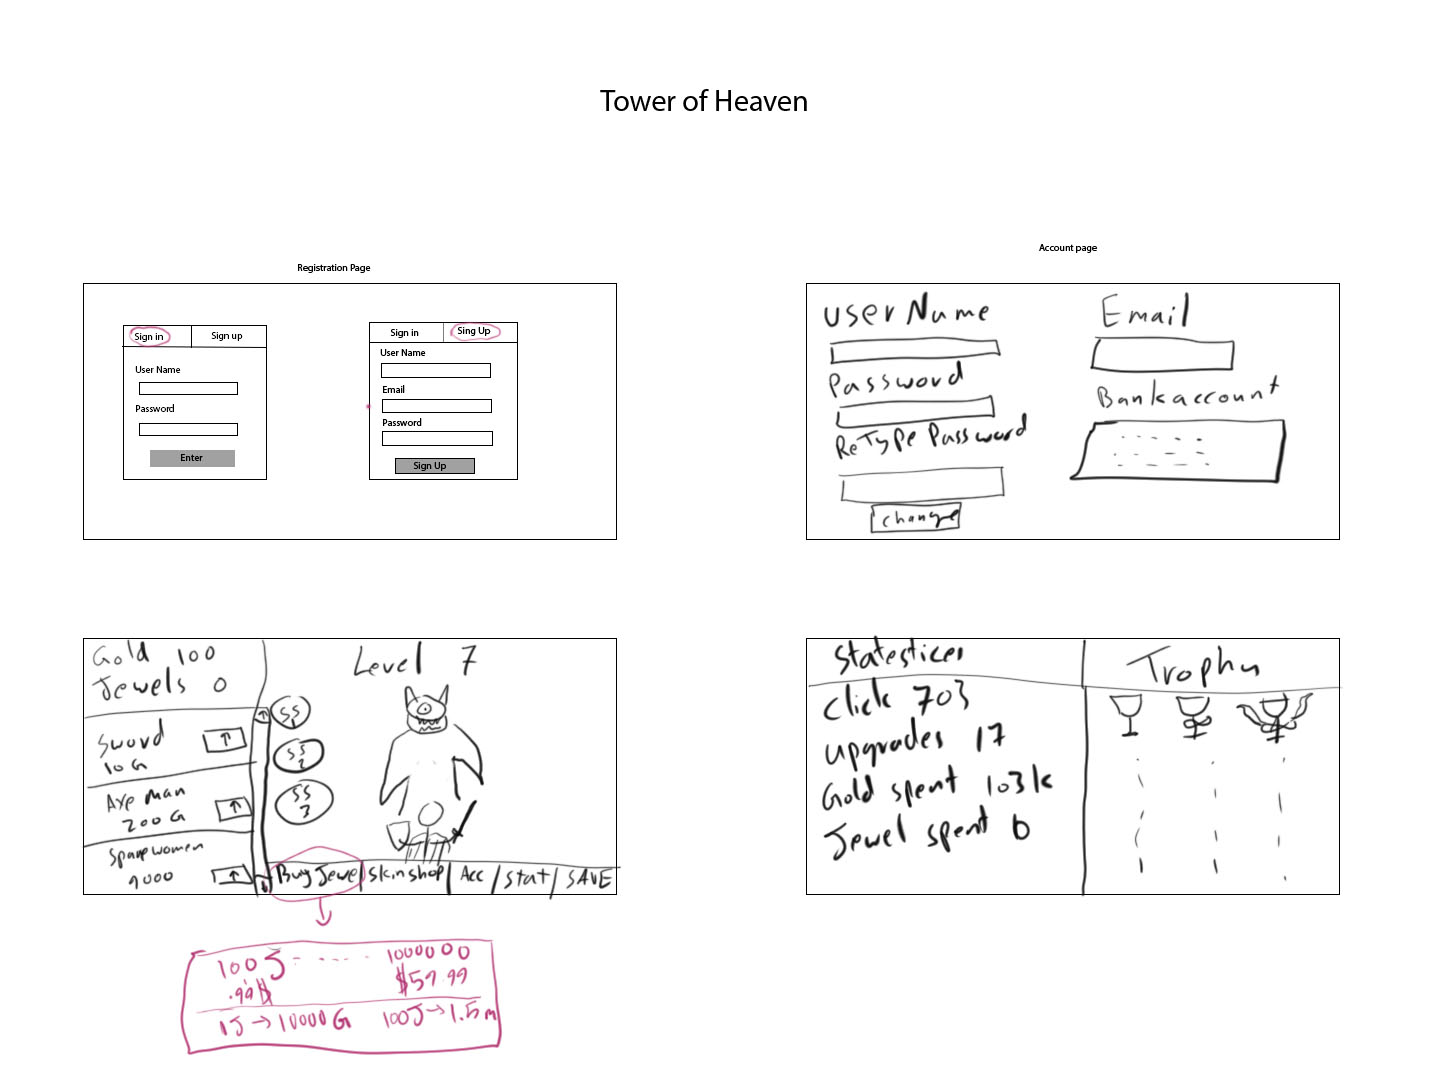 Tower of Heaven
Registration Page
Sign in Sign up
User Name
Password
Enter
Sign in Sing Up
User Name
Email
Password
Sign Up
Account page
userName
Password
ReType Password
change
Email
Bankaccount
Gold 100
Jewels 0
Sword
10 G
Axe man
200 G
women
9000
Level 7
SS
1
SS
2
SS
3
Buy Jewel skin shop Acc / Stat / SAVE
100J 1000000
.99$ $59.99
1J → 10000G 100J → 1.5m
Statestices
click 703
upgrades 17
Gold spent 103k
Jewel spent 0
Trophy